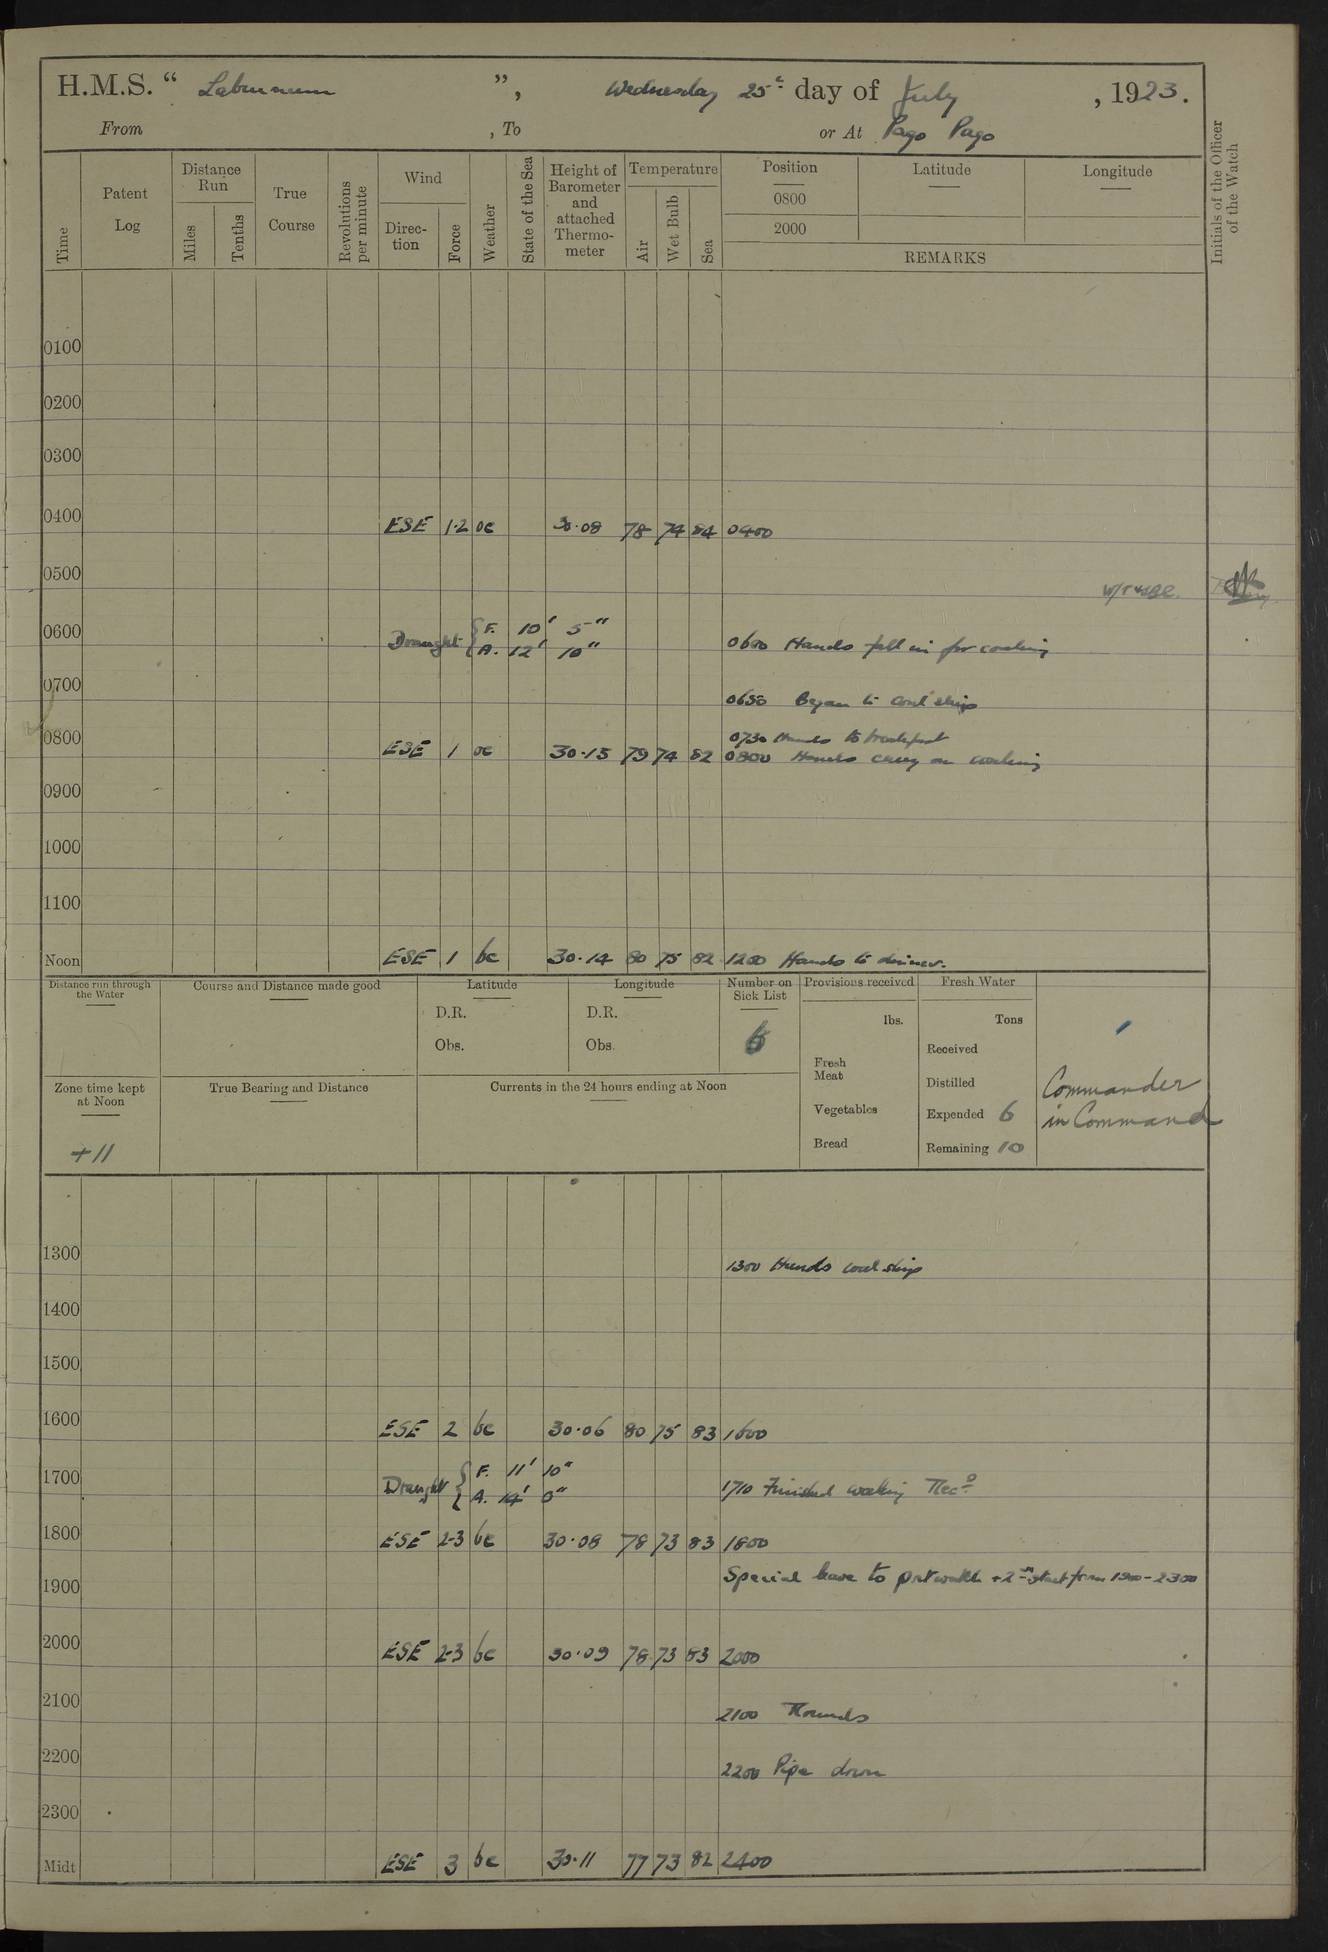 H.M.S. “ Laburnum ”, Wednesday 25th day of July , 1923.
From , To or At Pago Pago
Time
Patent Log
Distance Run
Miles
Tenths
True Course
Revolutions per minute
Wind
Direc-tion
Force
Weather
State of the Sea
Height of Barometer and attached Thermo-meter
Temperature
Air
Wet Bulb
Sea
Position
0800
2000
Latitude
Longitude
REMARKS
Initials of the Officer of the Watch
0100
0200
0300
0400 ESE 1·2 oc 30·08 78 74 84 0400
0500
0600 Draught { F. 10' 5"
A. 12' 10" 0600 Hands fall in for coaling
0700 0650 Began to coal ship
0730 Hands to breakfast
0800 ESE 1 oc 30·15 79 74 82 0800 Hands carry on coaling
0900
1000
1100
Noon ESE 1 bc 30·14 80 75 82 1200 Hands to dinner.
Distance run through the Water
Course and Distance made good
Latitude
D.R.
Obs.
Longitude
D.R.
Obs.
Number on Sick List
Provisions received
lbs.
Fresh Meat
Vegetables
Bread
Fresh Water
Tons
Received
Distilled
Expended 6
Remaining 10
Commander
in Command
Zone time kept at Noon
+11
True Bearing and Distance
Currents in the 24 hours ending at Noon
1300 1300 Hands coal ship
1400
1500
1600 ESE 2 bc 30·06 80 75 83 1600
1700 Draught { F. 11' 10"
A. 14' 0" 1710 Finished coaling
1800 ESE 2-3 bc 30·08 78 73 83 1800
1900 Special leave to port watch + 2nd part from 1900-2300
2000 ESE 2-3 bc 30·09 78 73 83 2000
2100 2100 Rounds
2200 2200 Pipe down
2300
Midt ESE 3 bc 30·11 77 73 82 2400